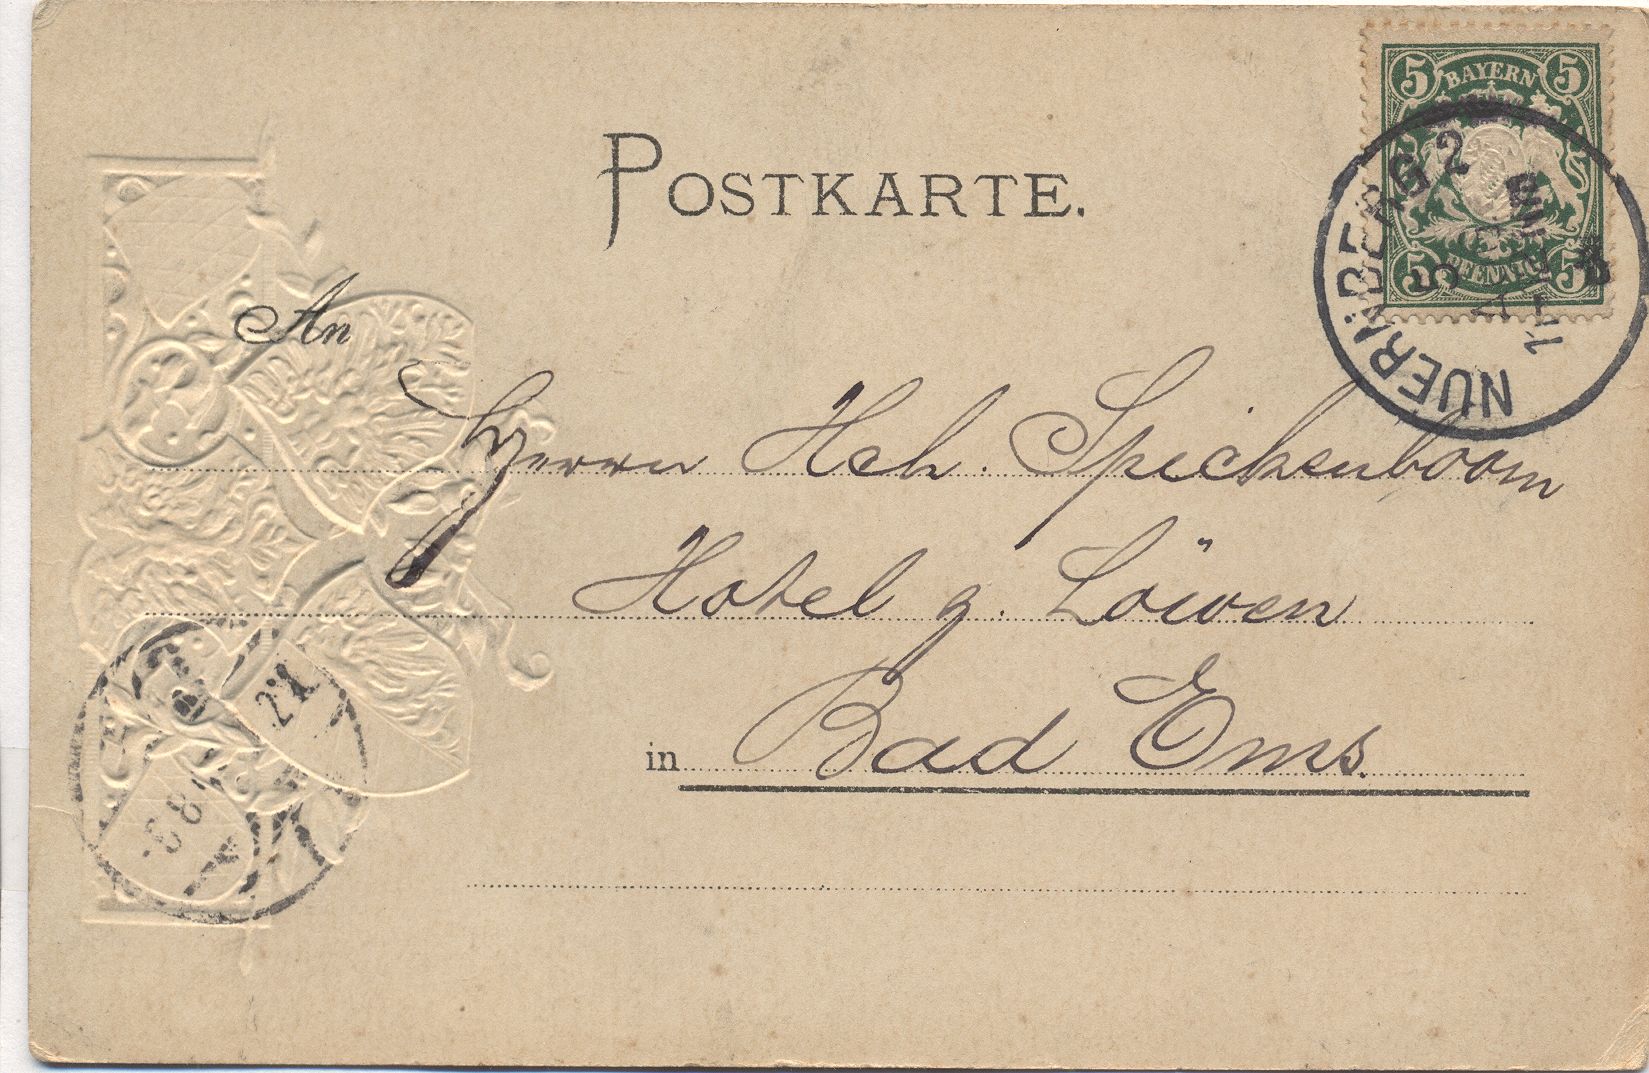 5 BAYERN 5
5 PFENNIG 5
NUERNBERG 2
5
POSTKARTE.
An
Herrn Hch. Spickenboom
Hotel z. Löwen
in Bad Ems.